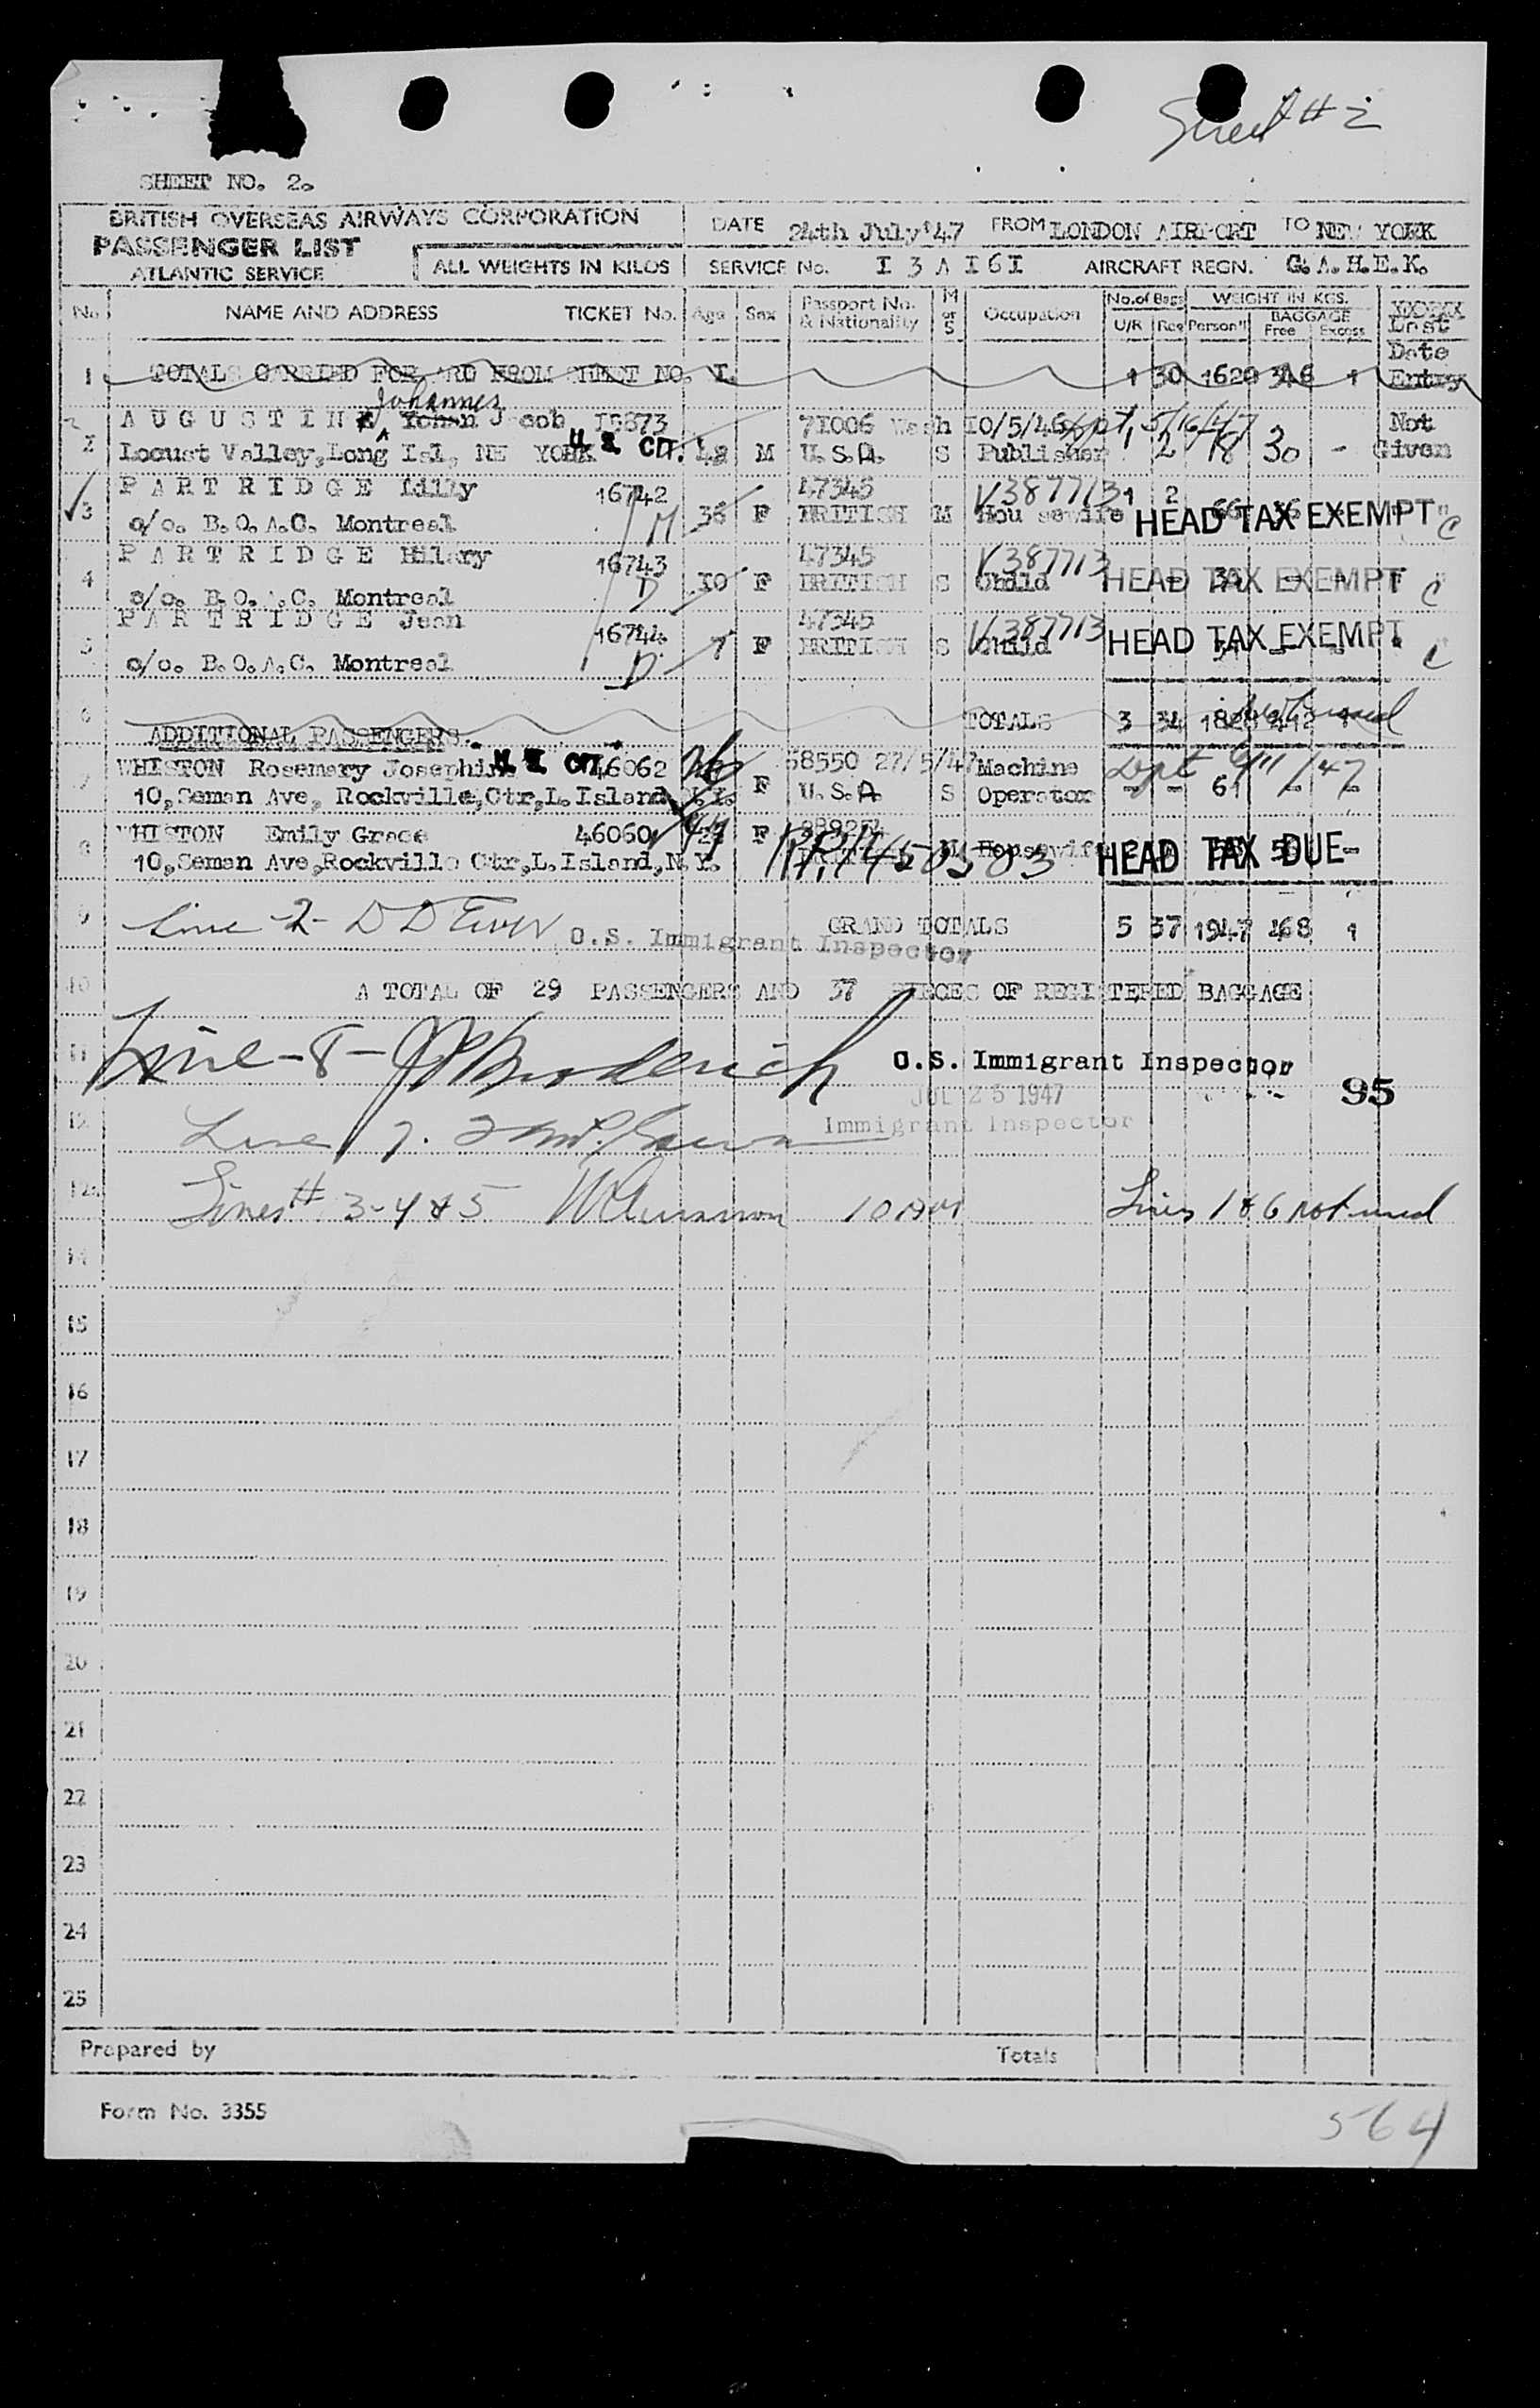 Sheet # 2
SHEET NO. 2.
BRITISH OVERSEAS AIRWAYS CORPORATION
PASSENGER LIST
ATLANTIC SERVICE
ALL WEIGHTS IN KILOS
DATE 24th July '47 FROM LONDON AIRPORT TO NEW YORK
SERVICE No. I 3 A I 6 I AIRCRAFT REGN. G.A.H.E.K.
No. NAME AND ADDRESS TICKET No. Age Sex Passport No. & Nationality M or S Occupation No. of Bags U/R Reg WEIGHT IN KGS. Person'l BAGGAGE Free Excess Last Date Entry
1 TOTALS CARRIED FORWARD FROM SHEET NO. I. 1 30 1620 346 1
Johannes
2 A U G U S T I N Johan Jacob 15873 71006 Wash 10/5/46 Not
Locust Valley, Long Isl, NEW YORK U.S. CIT. 48 M U.S.A. S Publisher 1 2 78 30 - Given
3 P A R T R I D G E Lilly 16742 47345 V387713 1 2
c/o. B.O.A.C. Montreal M 36 F BRITISH M Housewife HEAD TAX EXEMPT C
4 P A R T R I D G E Hilary 16743 47345 V387713
c/o. B.O.A.C. Montreal D 10 F BRITISH S Child HEAD TAX EXEMPT C
5 P A R T R I D G E Jean 16744 47345 V387713
c/o. B.O.A.C. Montreal D 7 F BRITISH S Child HEAD TAX EXEMPT C
6 TOTALS 3 34 1828 412 1
ADDITIONAL PASSENGERS.
7 WHISTON Rosemary Josephine U.S. CIT. 46062 26 F 58550 27/5/47 Machine Dept
10, Seman Ave, Rockville, Ctr, L. Island N.Y. U.S.A. S Operator - - 61 - -
8 WHISTON Emily Grace 46060 F
10, Seman Ave, Rockville Ctr, L. Island, N.Y. M Housewife HEAD TAX DUE
9 Line 2- GRAND TOTALS 5 37 1947 468 1
U.S. Immigrant Inspector
10 A TOTAL OF 29 PASSENGERS AND 37 PIECES OF REGISTERED BAGGAGE
11 Line - 8 - U.S. Immigrant Inspector
JUL 25 1947 95
12 Line 7. Immigrant Inspector
Lines # 3-4 & 5 Lines 1 & 6 not used
14
15
16
17
18
19
20
21
22
23
24
25
Prepared by Totals
Form No. 3355
564